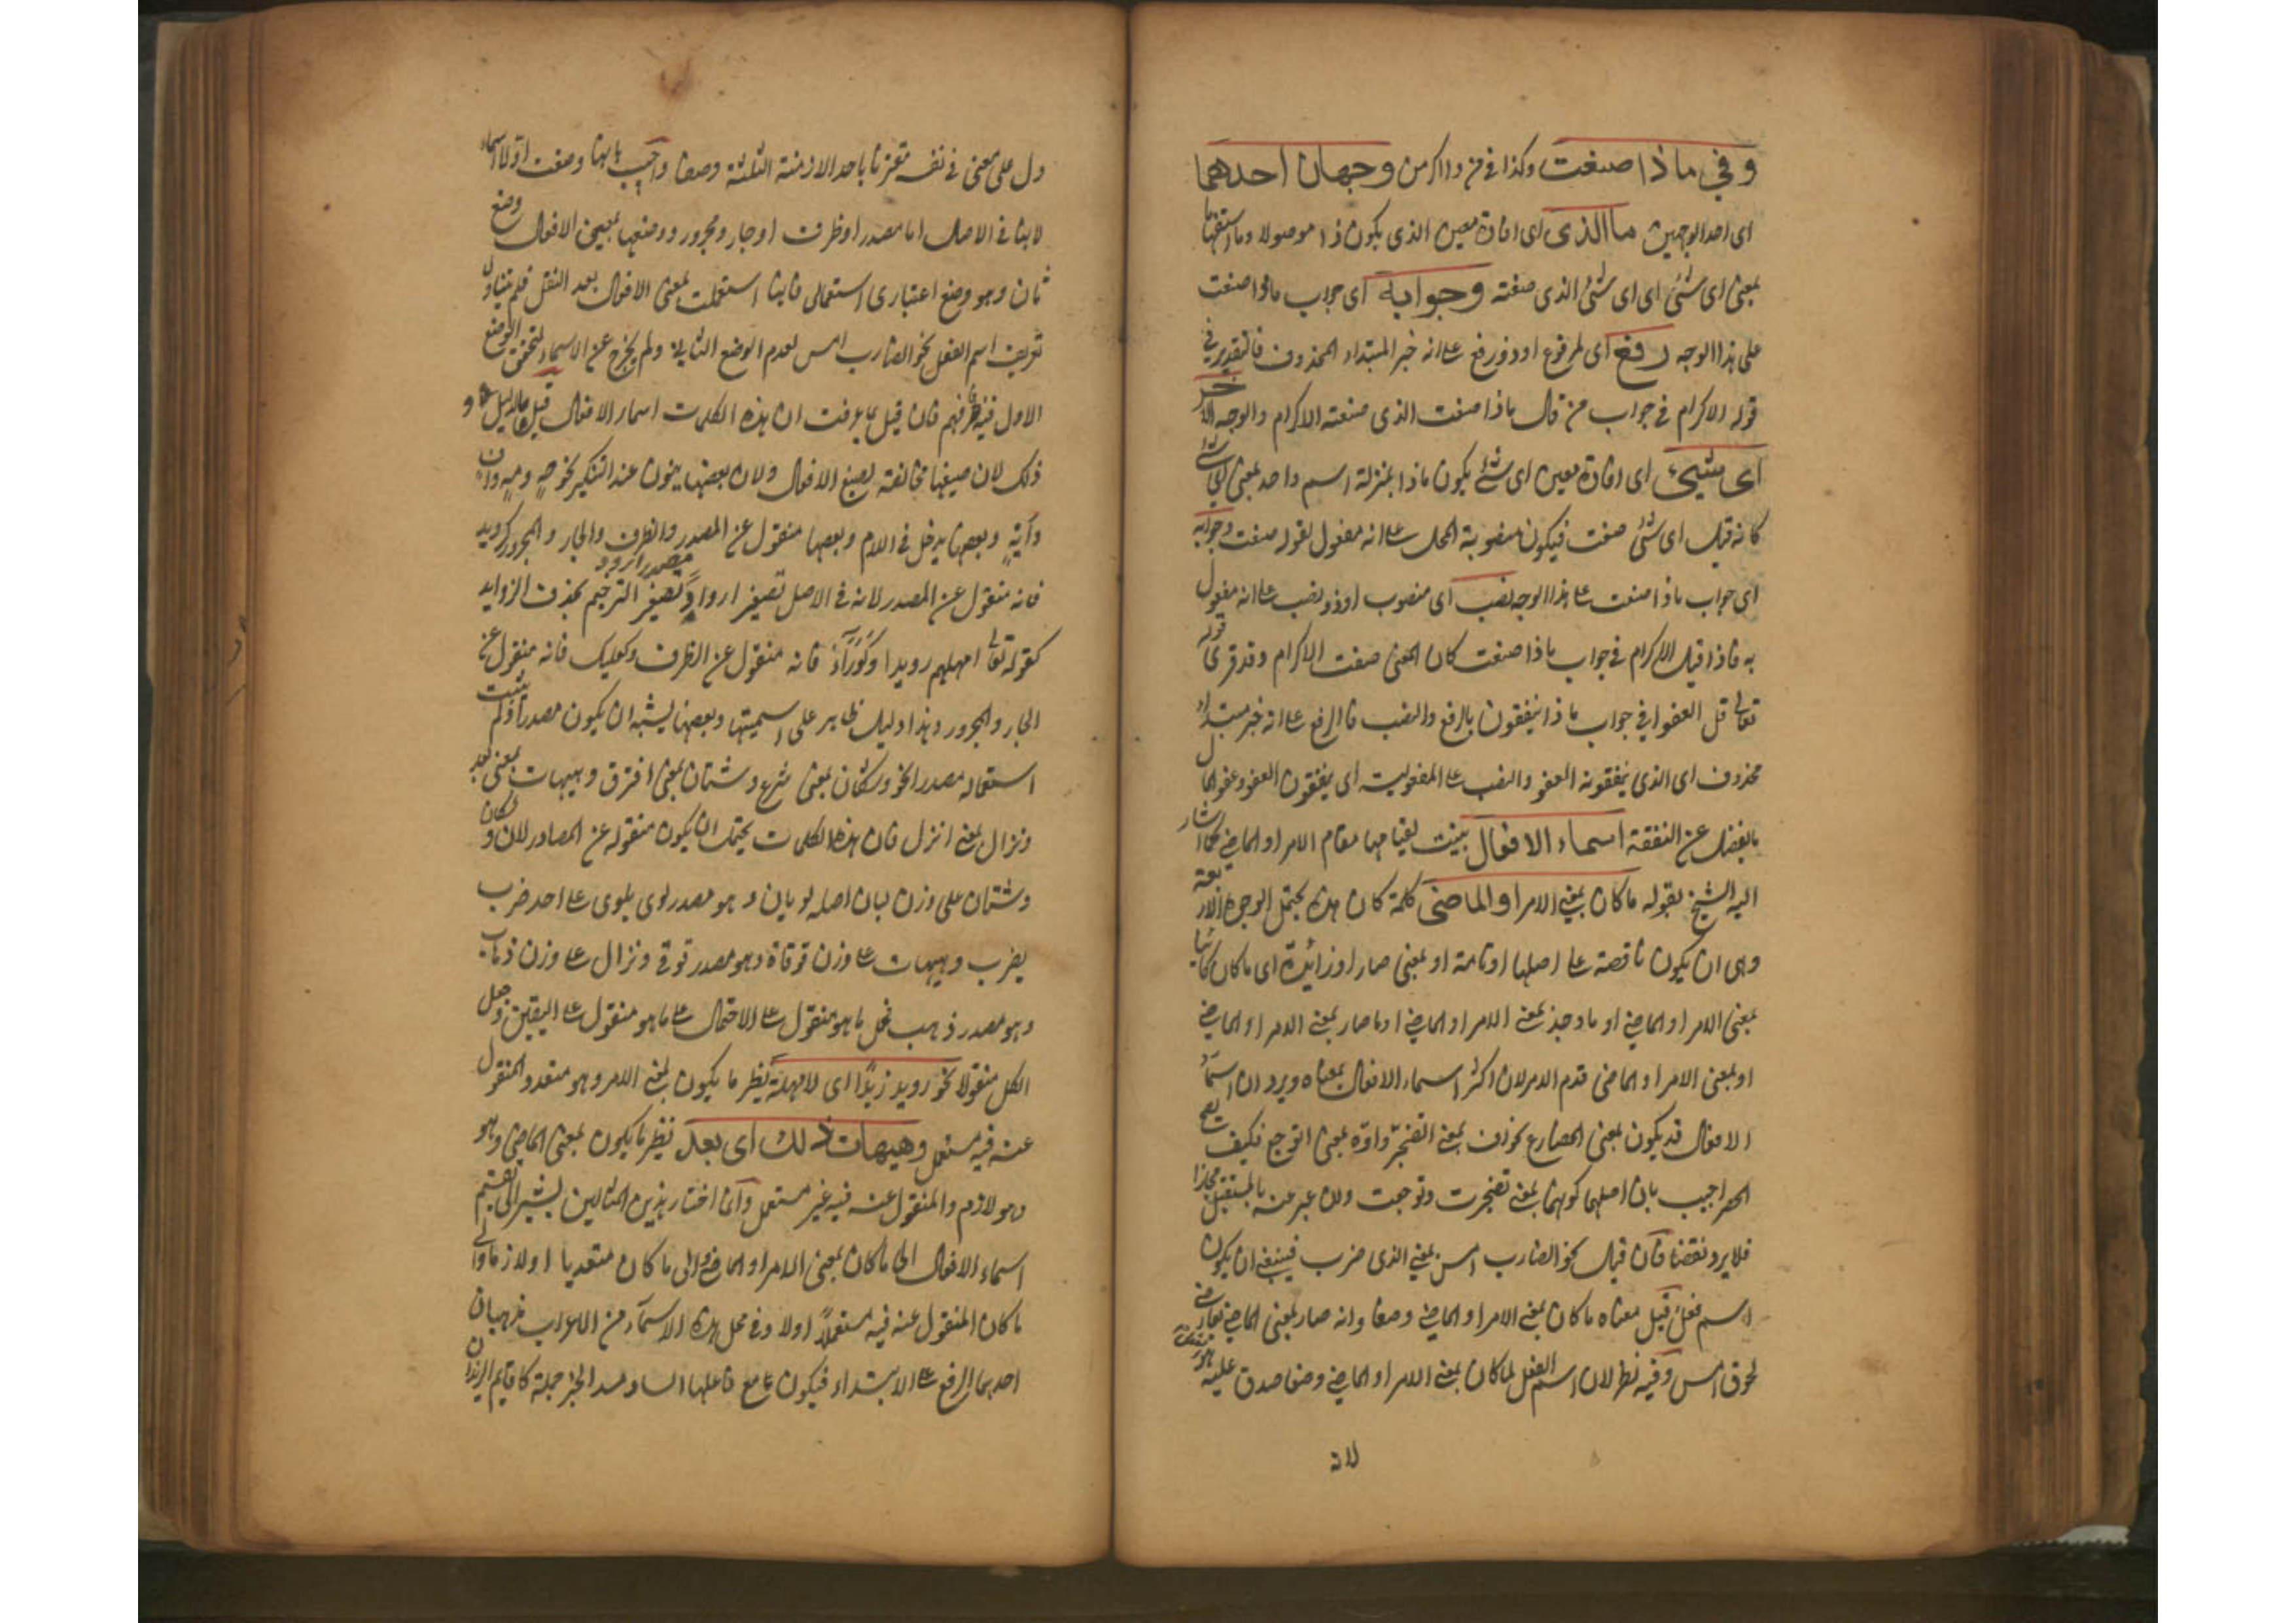 وفي ماذا صنعت وكذا في من ذا اكرمت وجهان احدهما
اى احد الوجهين ما الذى اى افادة معين الذى يكون ذا موصولا وما استفهاما
بمعنى اى شئ اى اى شئ الذى صنعته وجوابه اى جواب ماذا صنعت
على هذا الوجه رفع اى مرفوع او ذو رفع على انه خبر المبتداء المحذوف فالتقدير فى
قوله الاكرام فى جواب من قال ماذا صنعت الذى صنعته الاكرام والوجه الآخر
اى شيئ اى افادة معين اى شئ يكون ماذا بمنزلة اسم واحد بمعنى اى شئ
كانه قيل اى شئ صنعت فيكون منصوبة المحل على انه مفعول لقوله صنعت وجوابه
اى جواب ماذا صنعت على هذا الوجه نصب اى منصوب او ذو نصب على انه مفعول
به فاذا قيل الاكرام فى جواب ماذا صنعت كان المعنى صنعت الاكرام وقد قرئ قوله
تعالى قل العفو فى جواب ماذا ينفقون بالرفع والنصب فالرفع على انه خبر مبتداء
محذوف اى الذى ينفقونه العفو والنصب على المفعولية اى ينفقون العفو وهو المال
الفضل عن النفقة اسماء الافعال بنيت لقيامها مقام الامر او الماضى كما اشار
اليه الشيخ بقوله ما كان بمعنى الامر او الماضى كلمة كان هذه يحتمل الوجوه الاربعة
وهى ان يكون ناقصة على اصلها او تامة او بمعنى صار او زائدة اى ما كان كائنا
بمعنى الامر او الماضى او ما وجد بمعنى الامر او الماضى او ما صار بمعنى الامر او الماضى
او بمعنى الامر او الماضى قدم الامر لان اكثر اسماء الافعال بمعناه ويرد ان اسماء
الافعال قد يكون بمعنى المضارع نحو اف بمعنى اتضجر واوّه بمعنى اتوجع فكيف يصح
الحصر اجيب بان اصلهما كونهما بمعنى تضجرت وتوجعت ولكن عبر عنه بالمستقبل مجازا
فلا يرد نقضا فان قيل نحو الضارب امس بمعنى الذى ضرب فينبغى ان يكون
اسم فعل قيل معناه ما كان بمعنى الامر او الماضى وضعا وانه صار بمعنى الماضى بعارض
لحوق امس وفيه نظر لان اسم الفعل لما كان بمعنى الامر او الماضى وضعا صدق عليه
لانه
دل على معنى فى نفسه مقترنا باحد الازمنة الثلثة وضعا واجيب بانها وضعت اولا اسماء
لانها فى الاصل اما مصدر او ظرف او جار ومجرور ووضعها بمعنى الافعال وضع
ثان وهو وضع اعتبارى استعمالى فانها استعملت لمعنى الافعال بعد النقل فلم يتناول
تعريف اسم الفعل نحو الضارب امس لعدم الوضع الثانى ولم يخرج عن الاسماء لتحقق الوضع
الاول فيها فافهم فان قيل بم عرفت ان هذه الكلمات اسماء الافعال قيل
ذلك لان صيغها مخالفة لصيغ الافعال ولان بعضها ينون عند التنكير نحو صهٍ ومهٍ وافٍ
وايهٍ وبعضها يدخل فى اللام وبعضها منقول عن المصدر والظرف والجار والمجرور كرويد
فانه منقول عن المصدر لانه فى الاصل تصغير اروادٍ تصغير الترخيم بحذف الزوايد
كقوله تعالى امهلهم رويدا فانه منقول عن الظرف وكعليك فانه منقول عن
الجار والمجرور وهذا دليل ظاهر على اسميتها وبعضها يشبه ان يكون مصدرا ولم يثبت
استعماله مصدرا نحو وشكان بمعنى سرع وشتان بمعنى افترق وهيهات بمعنى بعد
ونزال بمعنى انزل فان هذه الكلمات يحتمل ان يكون منقولة عن المصادر لان وشكان
وشتان على وزن ليان اصله لويان وهو مصدر لوى يلوى على احد ضرب
يضرب وهيهات على وزن قوقاة وهو مصدر قوقى ونزال على وزن ذهاب
وهو مصدر ذهب فحمل ما هو منقول على الاحتمال على ما هو منقول على اليقين وجعل
الكل منقولا نحو رويد زيدًا اى امهله نظير ما يكون بمعنى الامر وهو متعد والمنقول
عنه فيه مستعمل وهيهات ذلك اى بعد نظير ما يكون بمعنى الماضى وهو
وهو لازم والمنقول عنه فيه غير مستعمل وانما اختار هذين المثالين ليشير الى تقسيم
اسماء الافعال الى ما كان بمعنى الامر او الماضى والى ما كان متعديا او لازما والى
ما كان المنقول عنه فيه مستعملًا اولا وفى محل هذه الاسماء من الاعراب مذهبان
احدهما الرفع على الابتداء فيكون مع فاعلها الساد مسد الخبر جملة كاقايم الزيدان